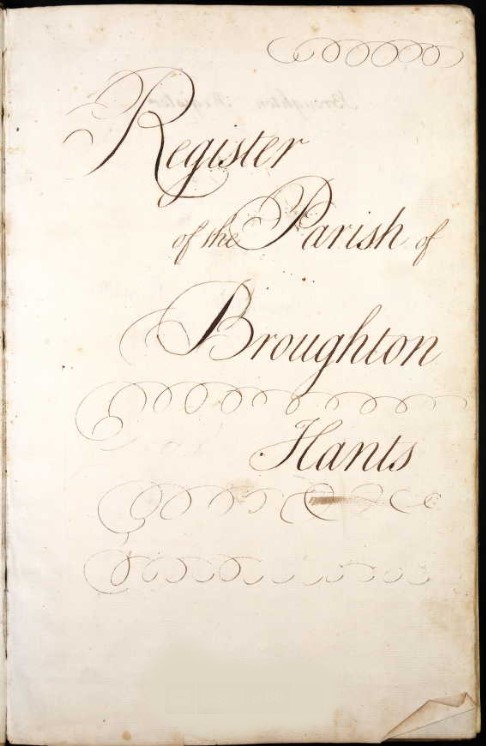 Register
of the Parish of
Broughton
Hants